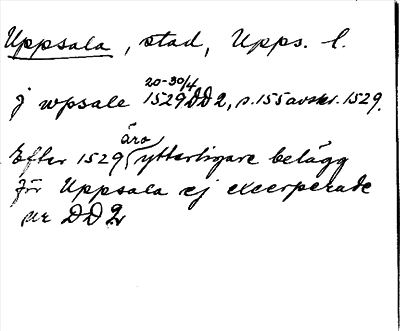 Uppsala, stad, Upps. l.
j wpsale 20-30/4 1529 DD2, s. 155 avskr. 1529.
Efter 1529 äro ytterligare belägg
för Uppsala ej excerperade
ur DD2